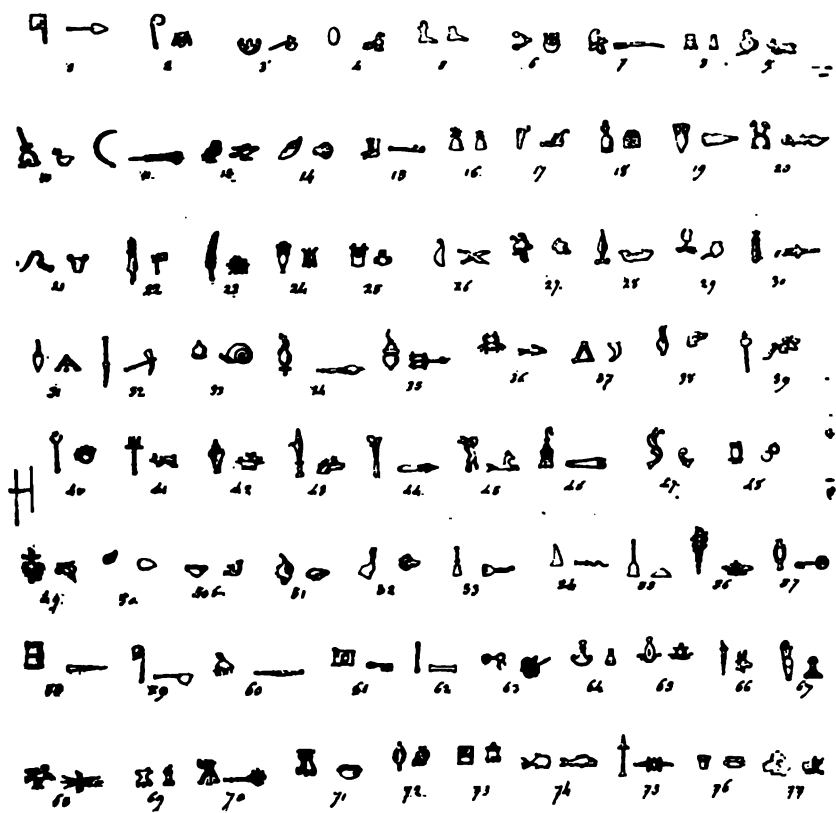 1 2 3 4 5 6 7 8 9
10 11. 14 15 16. 17 18 19 20
21 22 23 24 25 26 27. 28 29 30
31 32 33 34 35 36 37 38 39
H 40 41 42 43 44. 45 46 47. 48
49. 51 52 53 54 55 56 57
58 59 60 61 62 63 64 65 66 67
68 69 70 71 72. 73 74 75 76 77